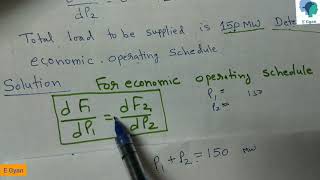 dP2
Total load to be supplied is 150 MW Dete
economic operating schedule
Solution For economic operating schedule
dF1/dP1 = dF2/dP2
P1 = 150
P2 =
P1 + P2 = 150 MW
E Gyan
E Gyan